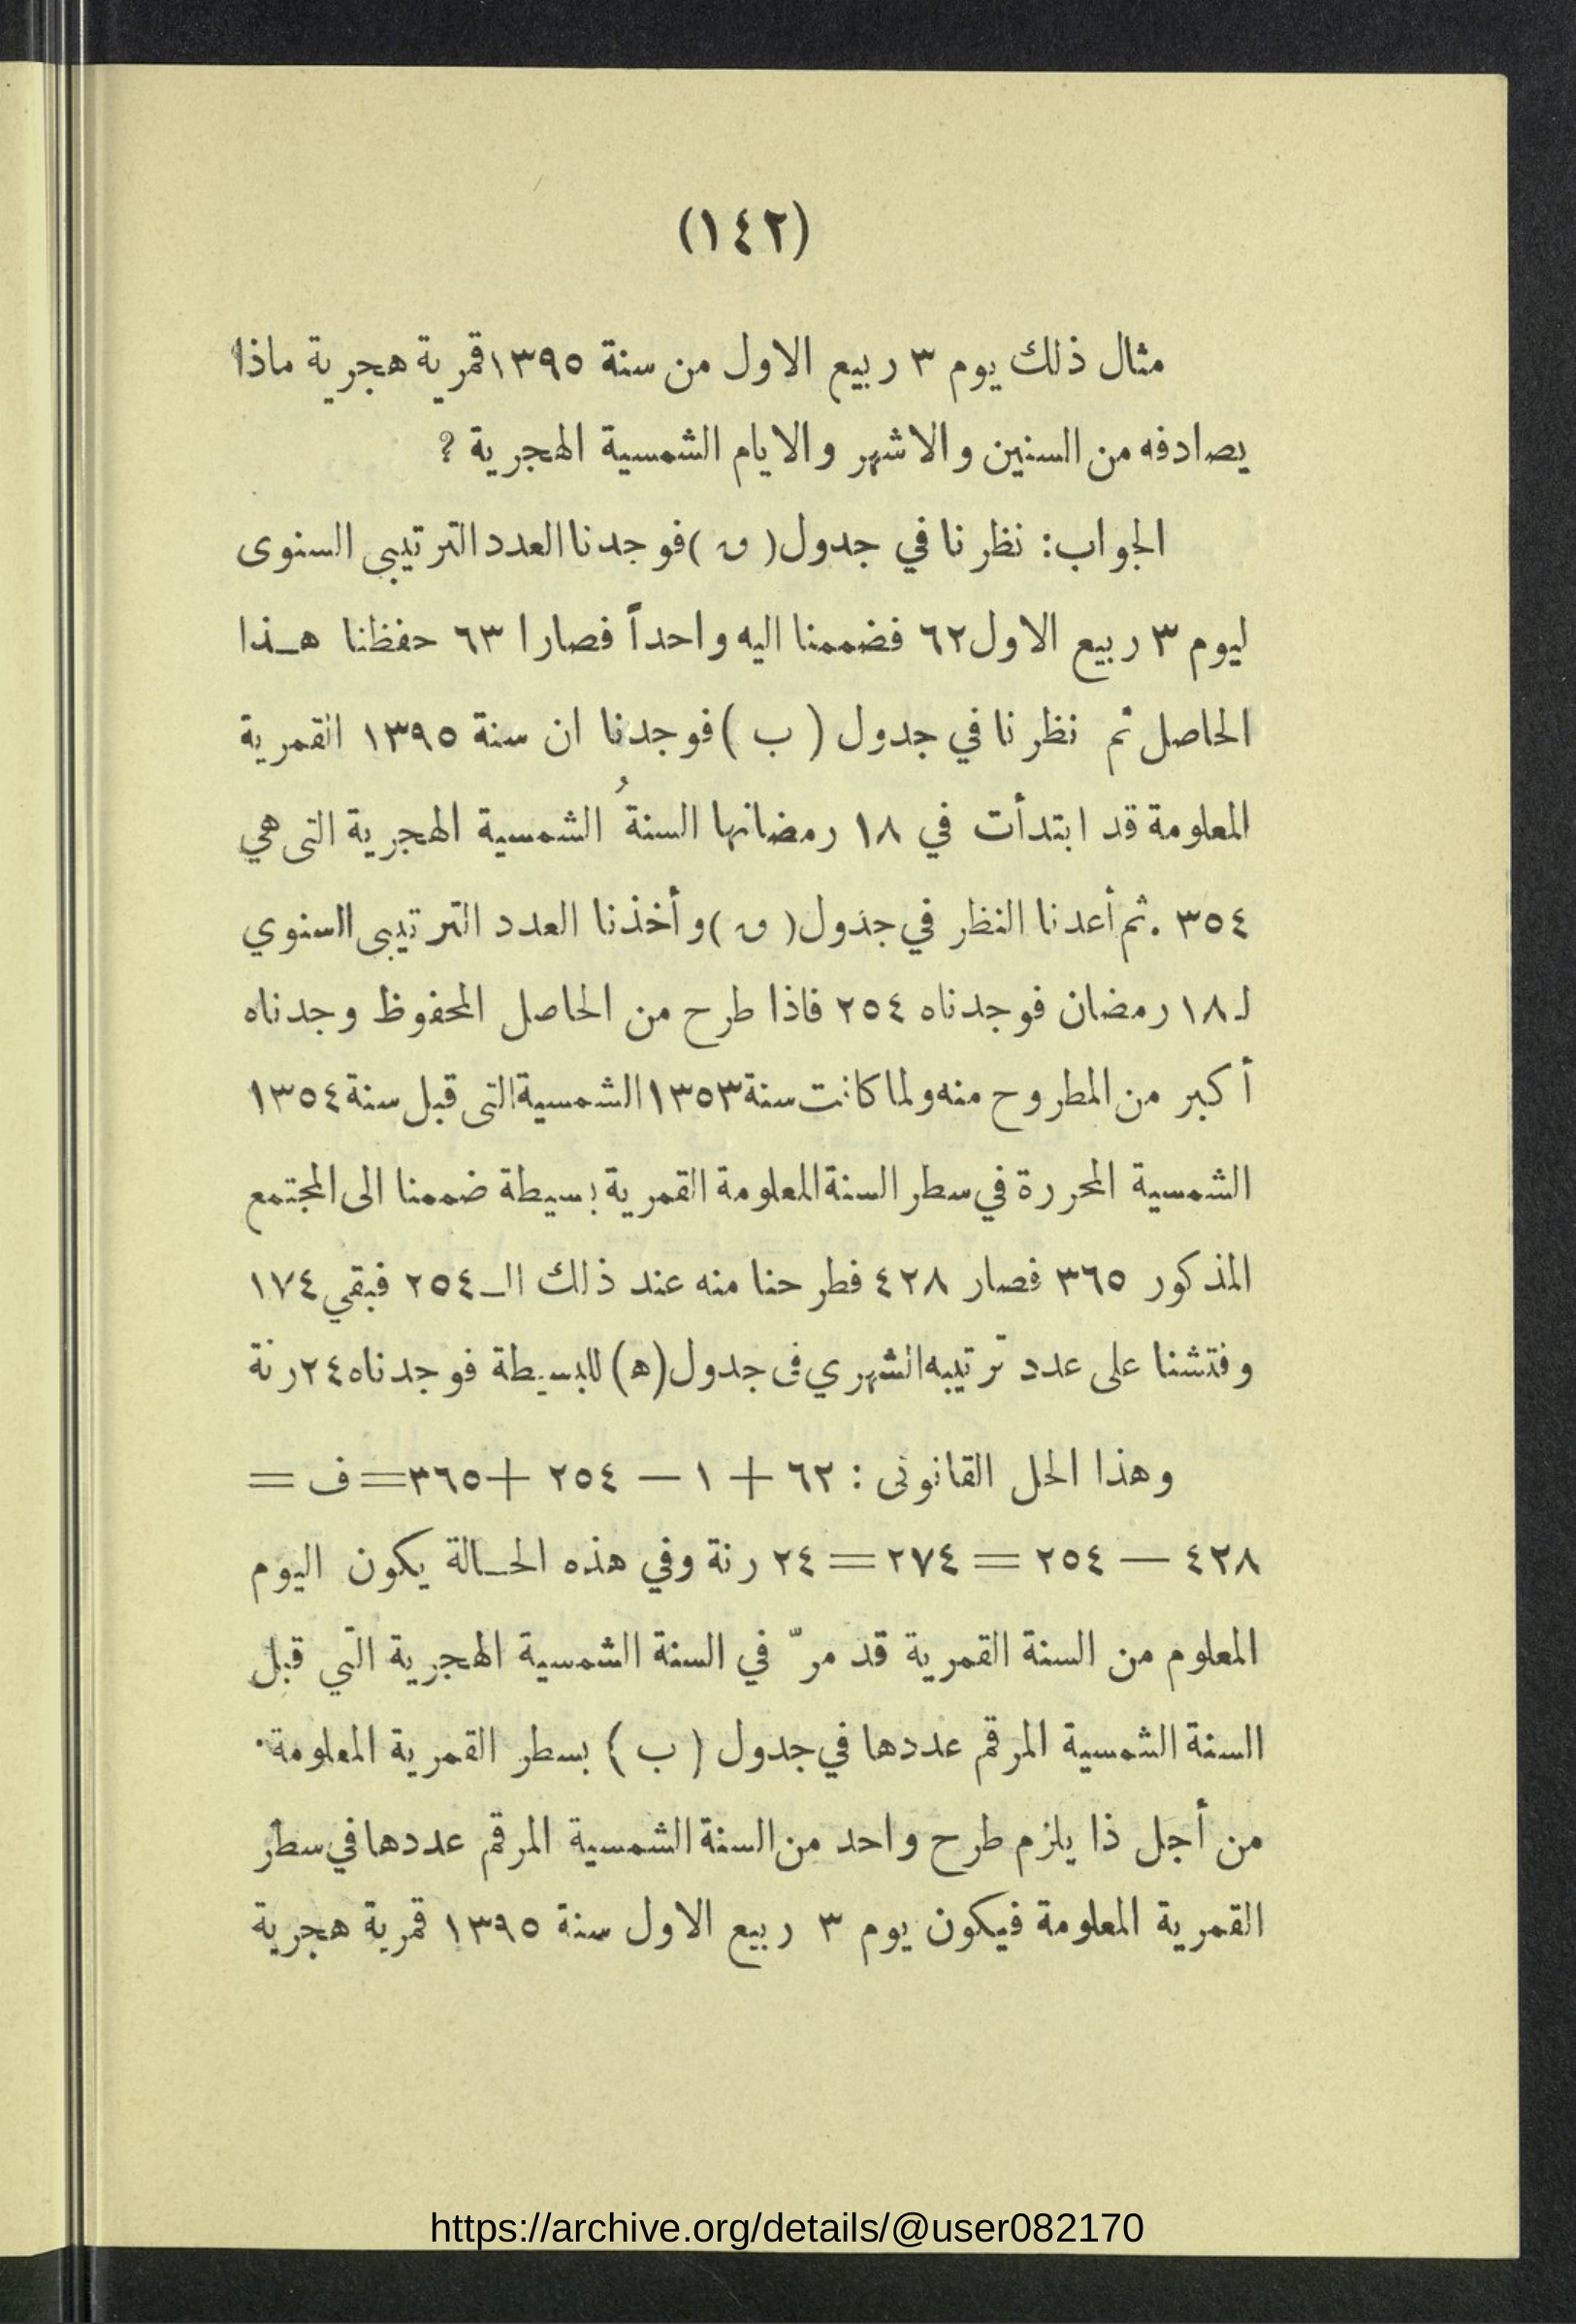 (١٤٢)
مثال ذلك يوم ٣ ربيع الاول من سنة ١٣٩٥ قمرية هجرية ماذا
يصادفه من السنين والاشهر والايام الشمسية الهجرية ؟
الجواب: نظرنا في جدول ( ں ) فوجدنا العدد الترتيبى السنوى
ليوم ٣ ربيع الاول ٦٢ فضممنا اليه واحداً فصارا ٦٣ حفظنا هـذا
الحاصل ثم نظرنا في جدول ( ب ) فوجدنا ان سنة ١٣٩٥ القمرية
المعلومة قد ابتدأت في ١٨ رمضانها السنةُ الشمسية الهجرية التى هي
٣٥٤ . ثم أعدنا النظر في جدول ( ں ) وأخذنا العدد الترتيبى السنوي
لـ ١٨ رمضان فوجدناه ٢٥٤ فاذا طرح من الحاصل المحفوظ وجدناه
أكبر من المطروح منه ولما كانت سنة ١٣٥٣ الشمسية التى قبل سنة ١٣٥٤
الشمسية المحررة في سطر السنة المعلومة القمرية بسيطة ضممنا الى المجتمع
المذكور ٣٦٥ فصار ٤٢٨ فطرحنا منه عند ذلك الـ ٢٥٤ فبقي ١٧٤
وفتشنا على عدد ترتيبه الشهري فى جدول (ه) للبسيطة فوجدناه ٢٤ رنة
وهذا الحل القانونى : ٦٢ + ١ — ٢٥٤ + ٣٦٥ = ف =
٤٢٨ — ٢٥٤ = ٢٧٤ = ٢٤ رنة وفي هذه الحـالة يكون اليوم
المعلوم من السنة القمرية قد مرّ في السنة الشمسية الهجرية التي قبل
السنة الشمسية المرقم عددها في جدول ( ب ) بسطر القمرية المعلومة.
من أجل ذا يلزم طرح واحد من السنة الشمسية المرقم عددها في سطر
القمرية المعلومة فيكون يوم ٣ ربيع الاول سنة ١٣٩٥ قمرية هجرية
https://archive.org/details/@user082170